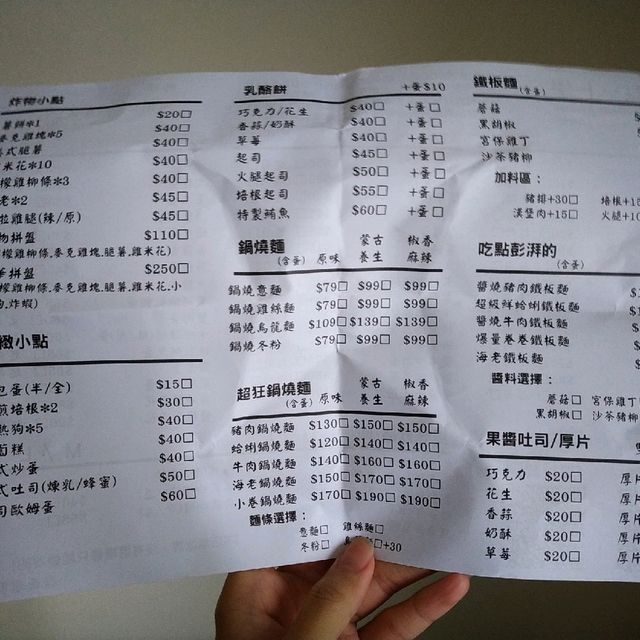 炸物小點
薯餅*1 $20□
麥克雞塊*5 $40□
式脆薯 $40□
米花*10 $40□
檬雞柳條*3 $40□
老*2 $45□
拉雞腿(辣/原) $45□
物拼盤 $110□
檬雞柳條.麥克雞塊.脆薯.雞米花)
拼盤 $250□
檬雞柳條.麥克雞塊.脆薯.雞米花.小
.炸蝦)
緻小點
包蛋(半/全) $15□
煎培根*2 $30□
熱狗*5 $40□
糕 $40□
式炒蛋 $40□
式吐司(煉乳/蜂蜜) $50□
司歐姆蛋 $60□
乳酪餅 +蛋$10
巧克力/花生 $40□ +蛋□
香蒜/奶酥 $40□ +蛋□
草莓 $40□ +蛋□
起司 $45□ +蛋□
火腿起司 $50□ +蛋□
培根起司 $55□ +蛋□
特製鮪魚 $60□ +蛋□
鍋燒麵 蒙古 椒香
(含蛋) 原味 養生 麻辣
鍋燒意麵 $79□ $99□ $99□
鍋燒雞絲麵 $79□ $99□ $99□
鍋燒烏龍麵 $109□ $139□ $139□
鍋燒冬粉 $79□ $99□ $99□
超狂鍋燒麵 蒙古 椒香
(含蛋) 原味 養生 麻辣
豬肉鍋燒麵 $130□ $150□ $150□
蛤蜊鍋燒麵 $120□ $140□ $140□
牛肉鍋燒麵 $140□ $160□ $160□
海老鍋燒麵 $150□ $170□ $170□
小卷鍋燒麵 $170□ $190□ $190□
麵條選擇：
意麵□ 雞絲麵□
冬粉□ □+30
鐵板麵 (含蛋)
蘑菇
黑胡椒
宮保雞丁
沙茶豬柳
加料區：
豬排+30□ 培根+15
漢堡肉+15□ 火腿+10
吃點澎湃的
(含蛋)
醬燒豬肉鐵板麵
超級鮮蛤蜊鐵板麵
醬燒牛肉鐵板麵
爆量卷卷鐵板麵
海老鐵板麵
醬料選擇：
蘑菇□ 宮保雞丁
黑胡椒□ 沙茶豬柳
果醬吐司/厚片
巧克力 $20□ 厚片
花生 $20□ 厚片
香蒜 $20□ 厚片
奶酥 $20□ 厚片
草莓 $20□ 厚片